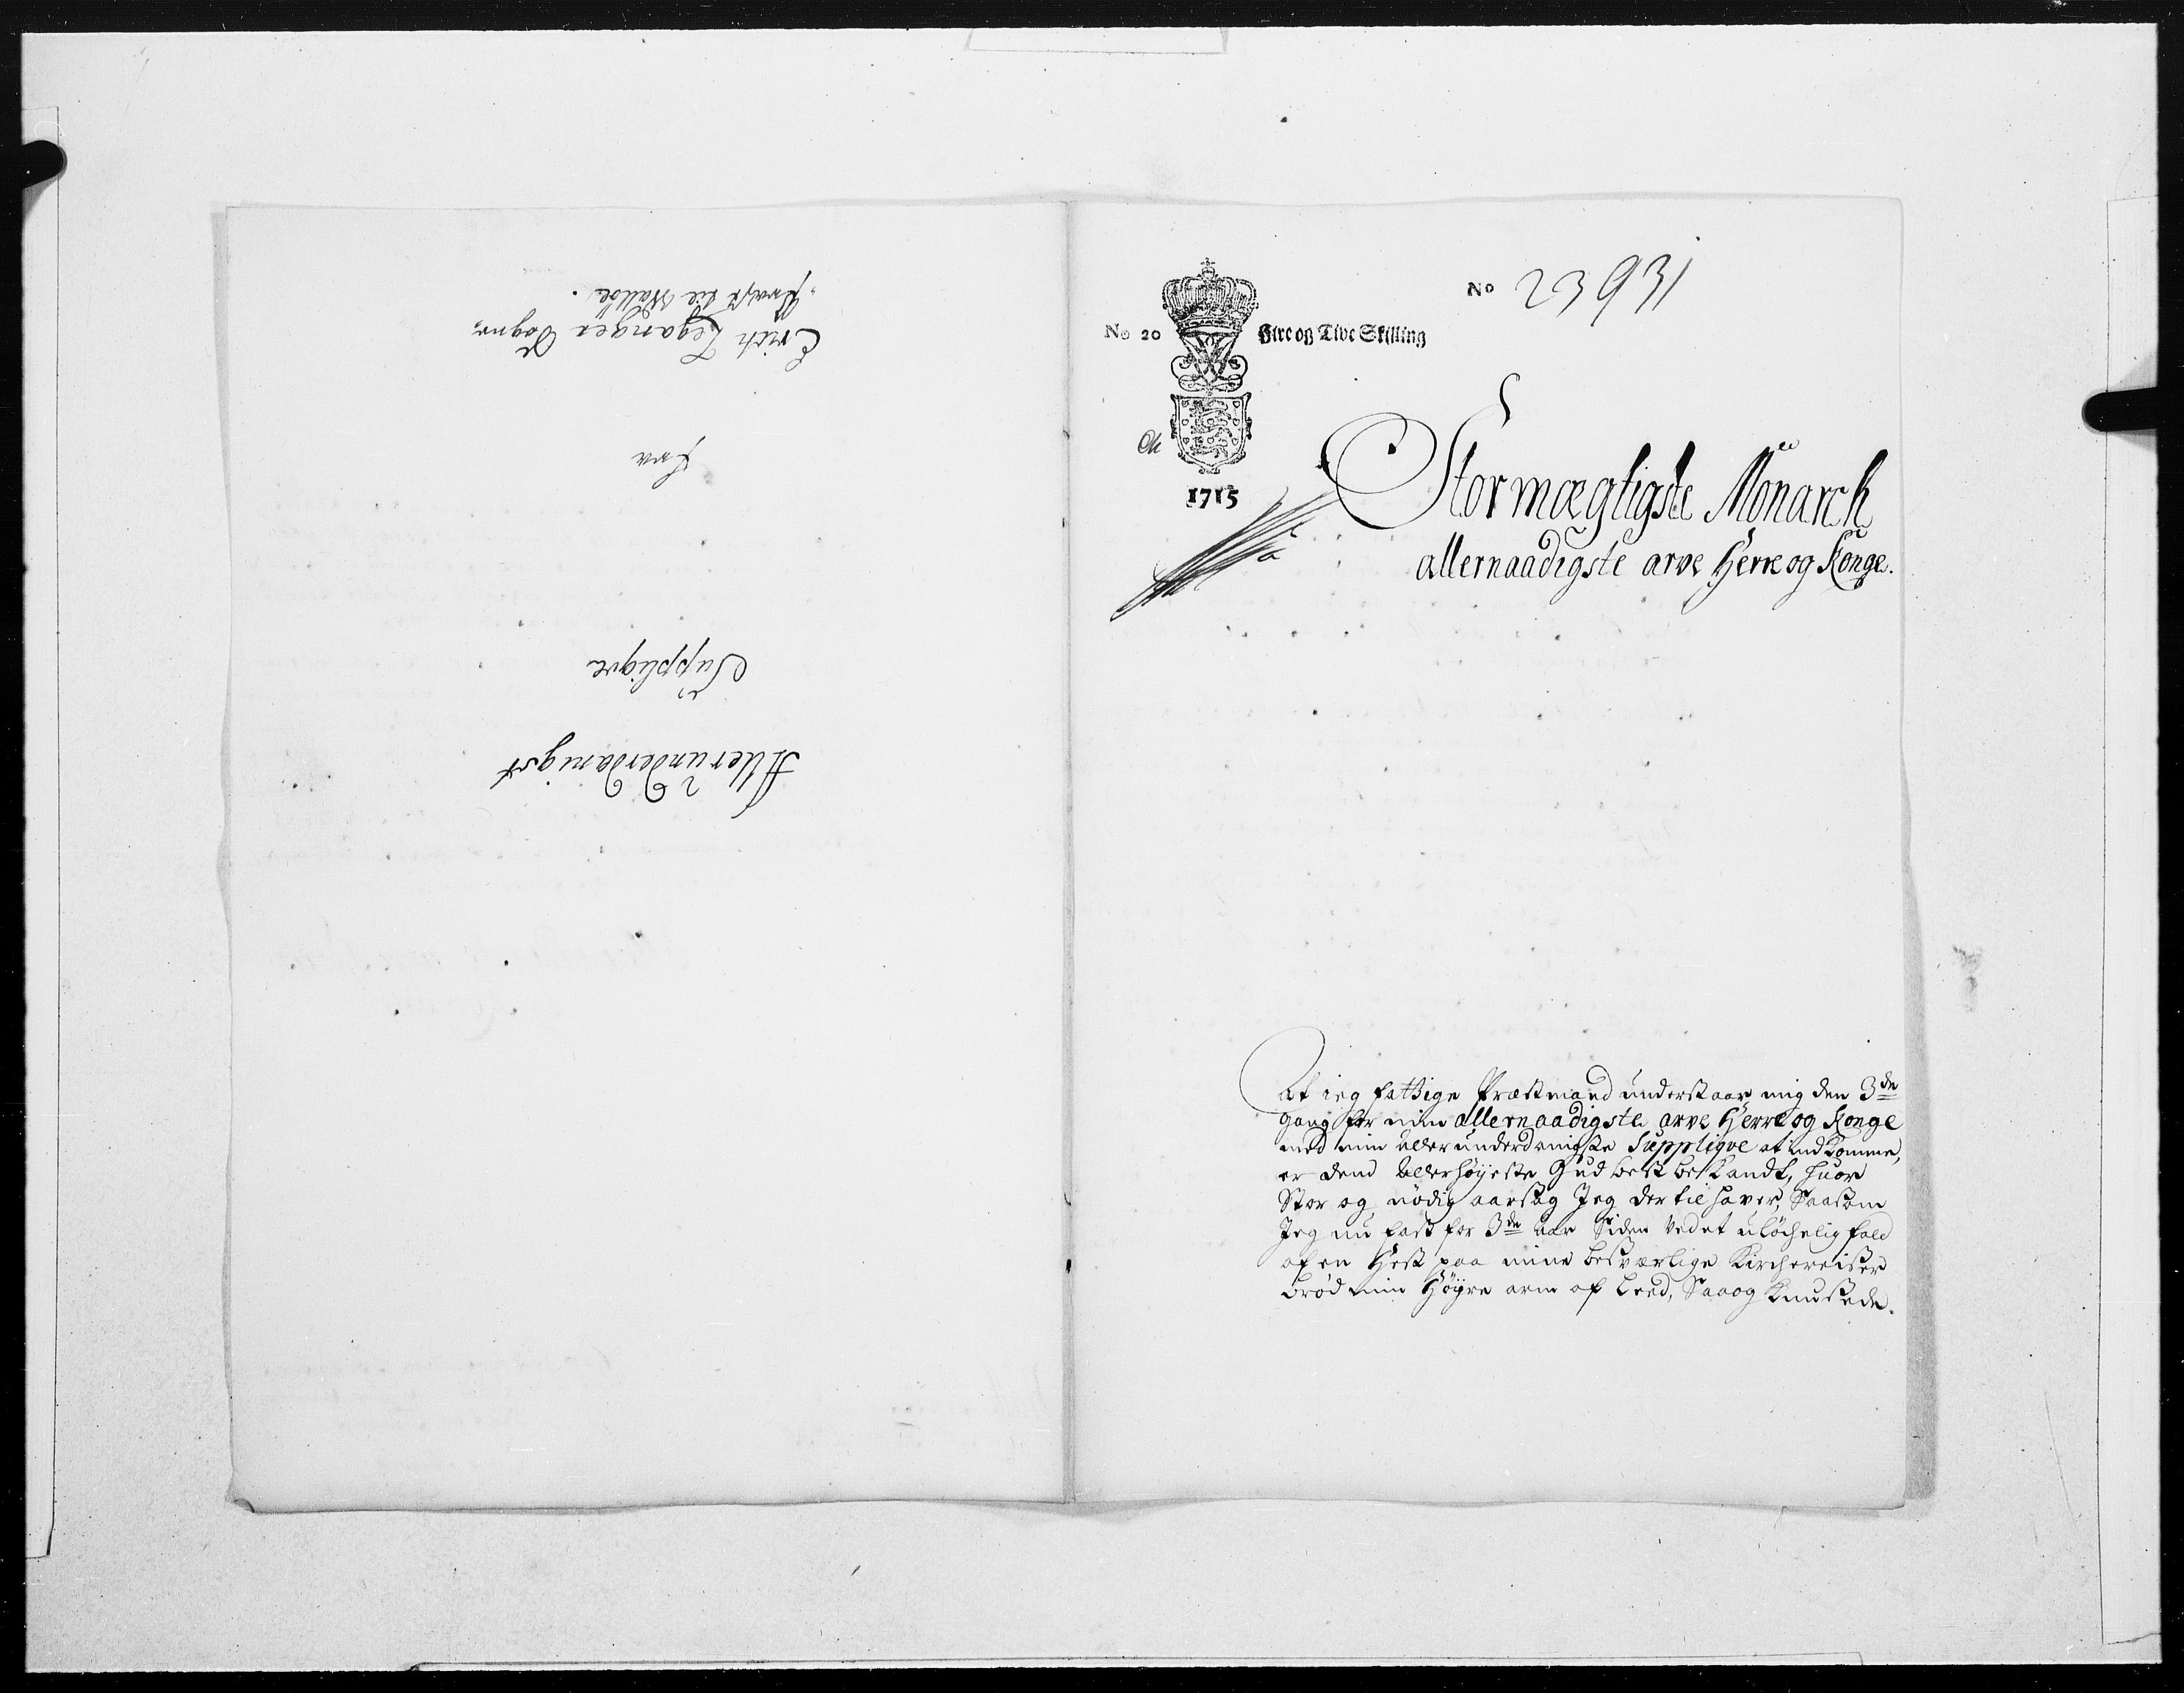 Allerunderdanigst
Supplique
fra
Erich Leganger Sogne
Præst til Walløe.
No 23931
No 20 Fire og Tive Skilling
1715
Stormægtigste Monarch
allernaadigste arve Herre og Konge.
At ieg fattige Præstmand understaar mig den 3de
gang for min allernaadigste arve Herre og Konge
med min allerunderdanigste Supplique at indkomme,
er dend allerhøyeste Gud best bekandt, huor
Stor og nødig aarsag Jeg der til haver, Saasom
Jeg nu fast for 3de aar Siden Ved et ulychelig fald
af en Hest paa mine besværlige Kirchereiser
brød min Høyre arm af Leed, Saa og knusede